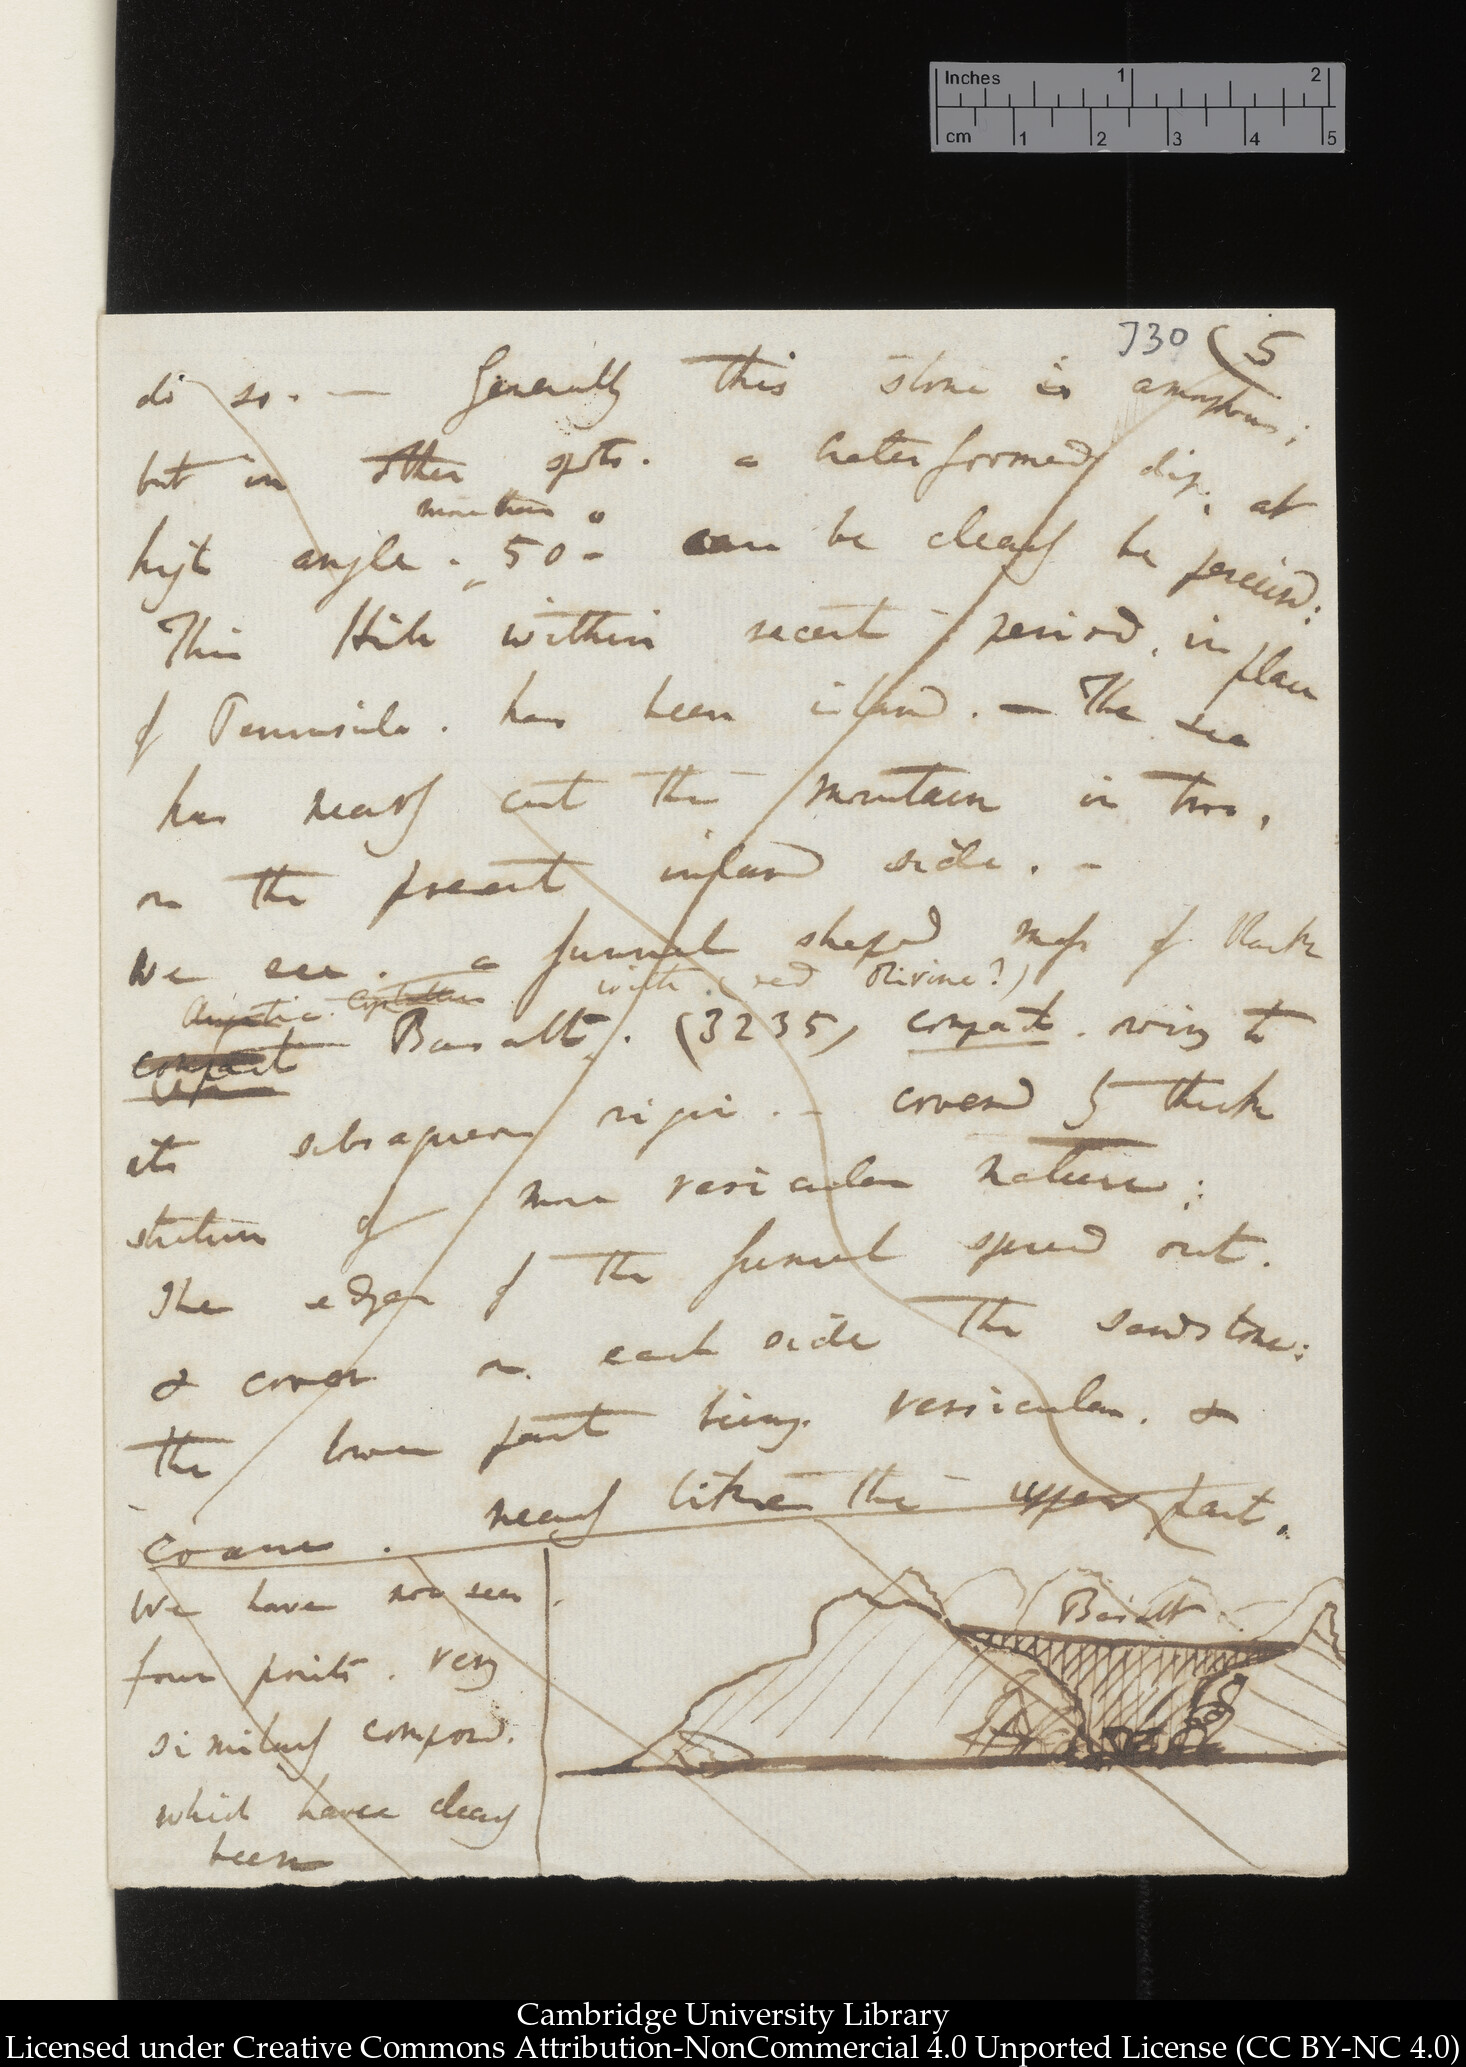 Inches 1 2
cm 1 2 3 4 5
730 (5
do so. — Generally this stone is amorphous;
but in other spots. a crater formed dip, at
more than
high angle. 50° — can be clearly be perceived:
This Hill within recent period, in place
of Peninsula. has been island. — The sea
has nearly cut the mountain in two,
on the present inland side. —
We see. a funnel shaped mass of black
Augitic with (red Olivine?)
compact Basalt. (3235) compact. owing to
its subsequent origin. — covered by thick
stratum of more vesicular nature;
The edges of the funnel spread out.
& cover on each side the sandstone:
the lower part being vesicular. &
coarse. nearly like the upper part.
We have now seen
four points. very
similarly composed.
which have clearly
been
Basalt
Cambridge University Library
Licensed under Creative Commons Attribution-NonCommercial 4.0 Unported License (CC BY-NC 4.0)